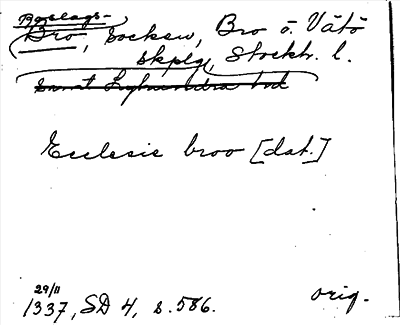 Roslags-
Bro, socken, Bro o. Vätö
skplg, Stockh. l.
samt Lyhundra hd
Ecclesie broo [dat.]
29/11
1337, SD 4, s. 586. orig.